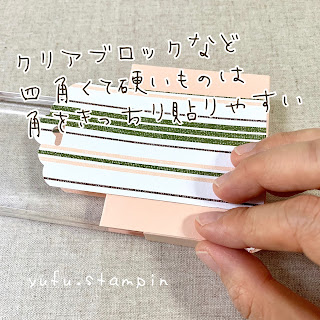 クリアブロックなど
四角くて硬いものは
角をきっちり貼りやすい
yufu.stampin